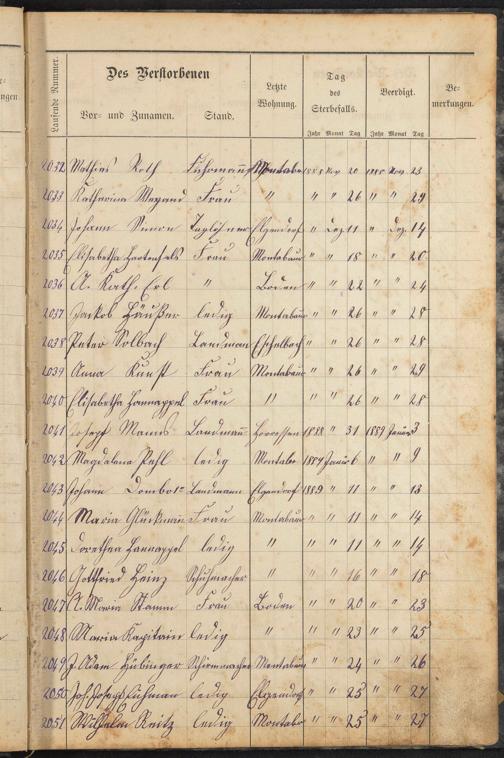 Laufende Nummer. Des Verstorbenen Letzte Wohnung. Tag des Sterbefalls. Beerdigt. Bemerkungen.
Vor- und Zunamen. Stand. Jahr Monat Tag Jahr Monat Tag
2032 Mathias Roth Fuhrmann Montabr 1888 Nov 20 1888 Nov. 23
2033 Katharina Weyand Frau " " " 26 " " 29
2034 Johann Taglöhner Elgendorf " Dez 11 " Dez 14
2035 Elisabetha Frau Montabaur " " 18 " " 20
2036 A. Kath. Erl " Boden " " 22 " " 24
2037 Jackob Häußer ledig Montabaur " " 26 " " 28
2038 Peter Solbach Landman Eschelbach " " 26 " " 28
2039 Anna Kunst Frau Montabaur " " 26 " " 29
2040 Elisabetha Hannappel Frau " " " 26 " " 28
2041 Joseph Manns Landmann Horressen 1888 " 31 1889 Januar 3
2042 Magdalena ledig Montabr 1889 Januar 6 " " 9
2043 Johann Landmann Elgendorf 1889 " 11 " " 13
2044 Maria Glückman Frau Montabaur " " 11 " " 14
2045 Dorothea Hannappel ledig " " " 11 " " 14
2046 Gottfried Heinz Schuhmacher " " " 16 " " 18
2047 A. Maria Stamm Frau Boden " " 20 " " 23
2048 Maria Kapitain ledig " " " 23 " " 25
2049 J. Adam Hübinger Schirmmacher Montabaur " " 24 " " 26
2050 Joh. Joseph ledig Elgendorf " " 25 " " 27
2051 Wilhelm Reitz ledig Montabr " " 25 " " 27